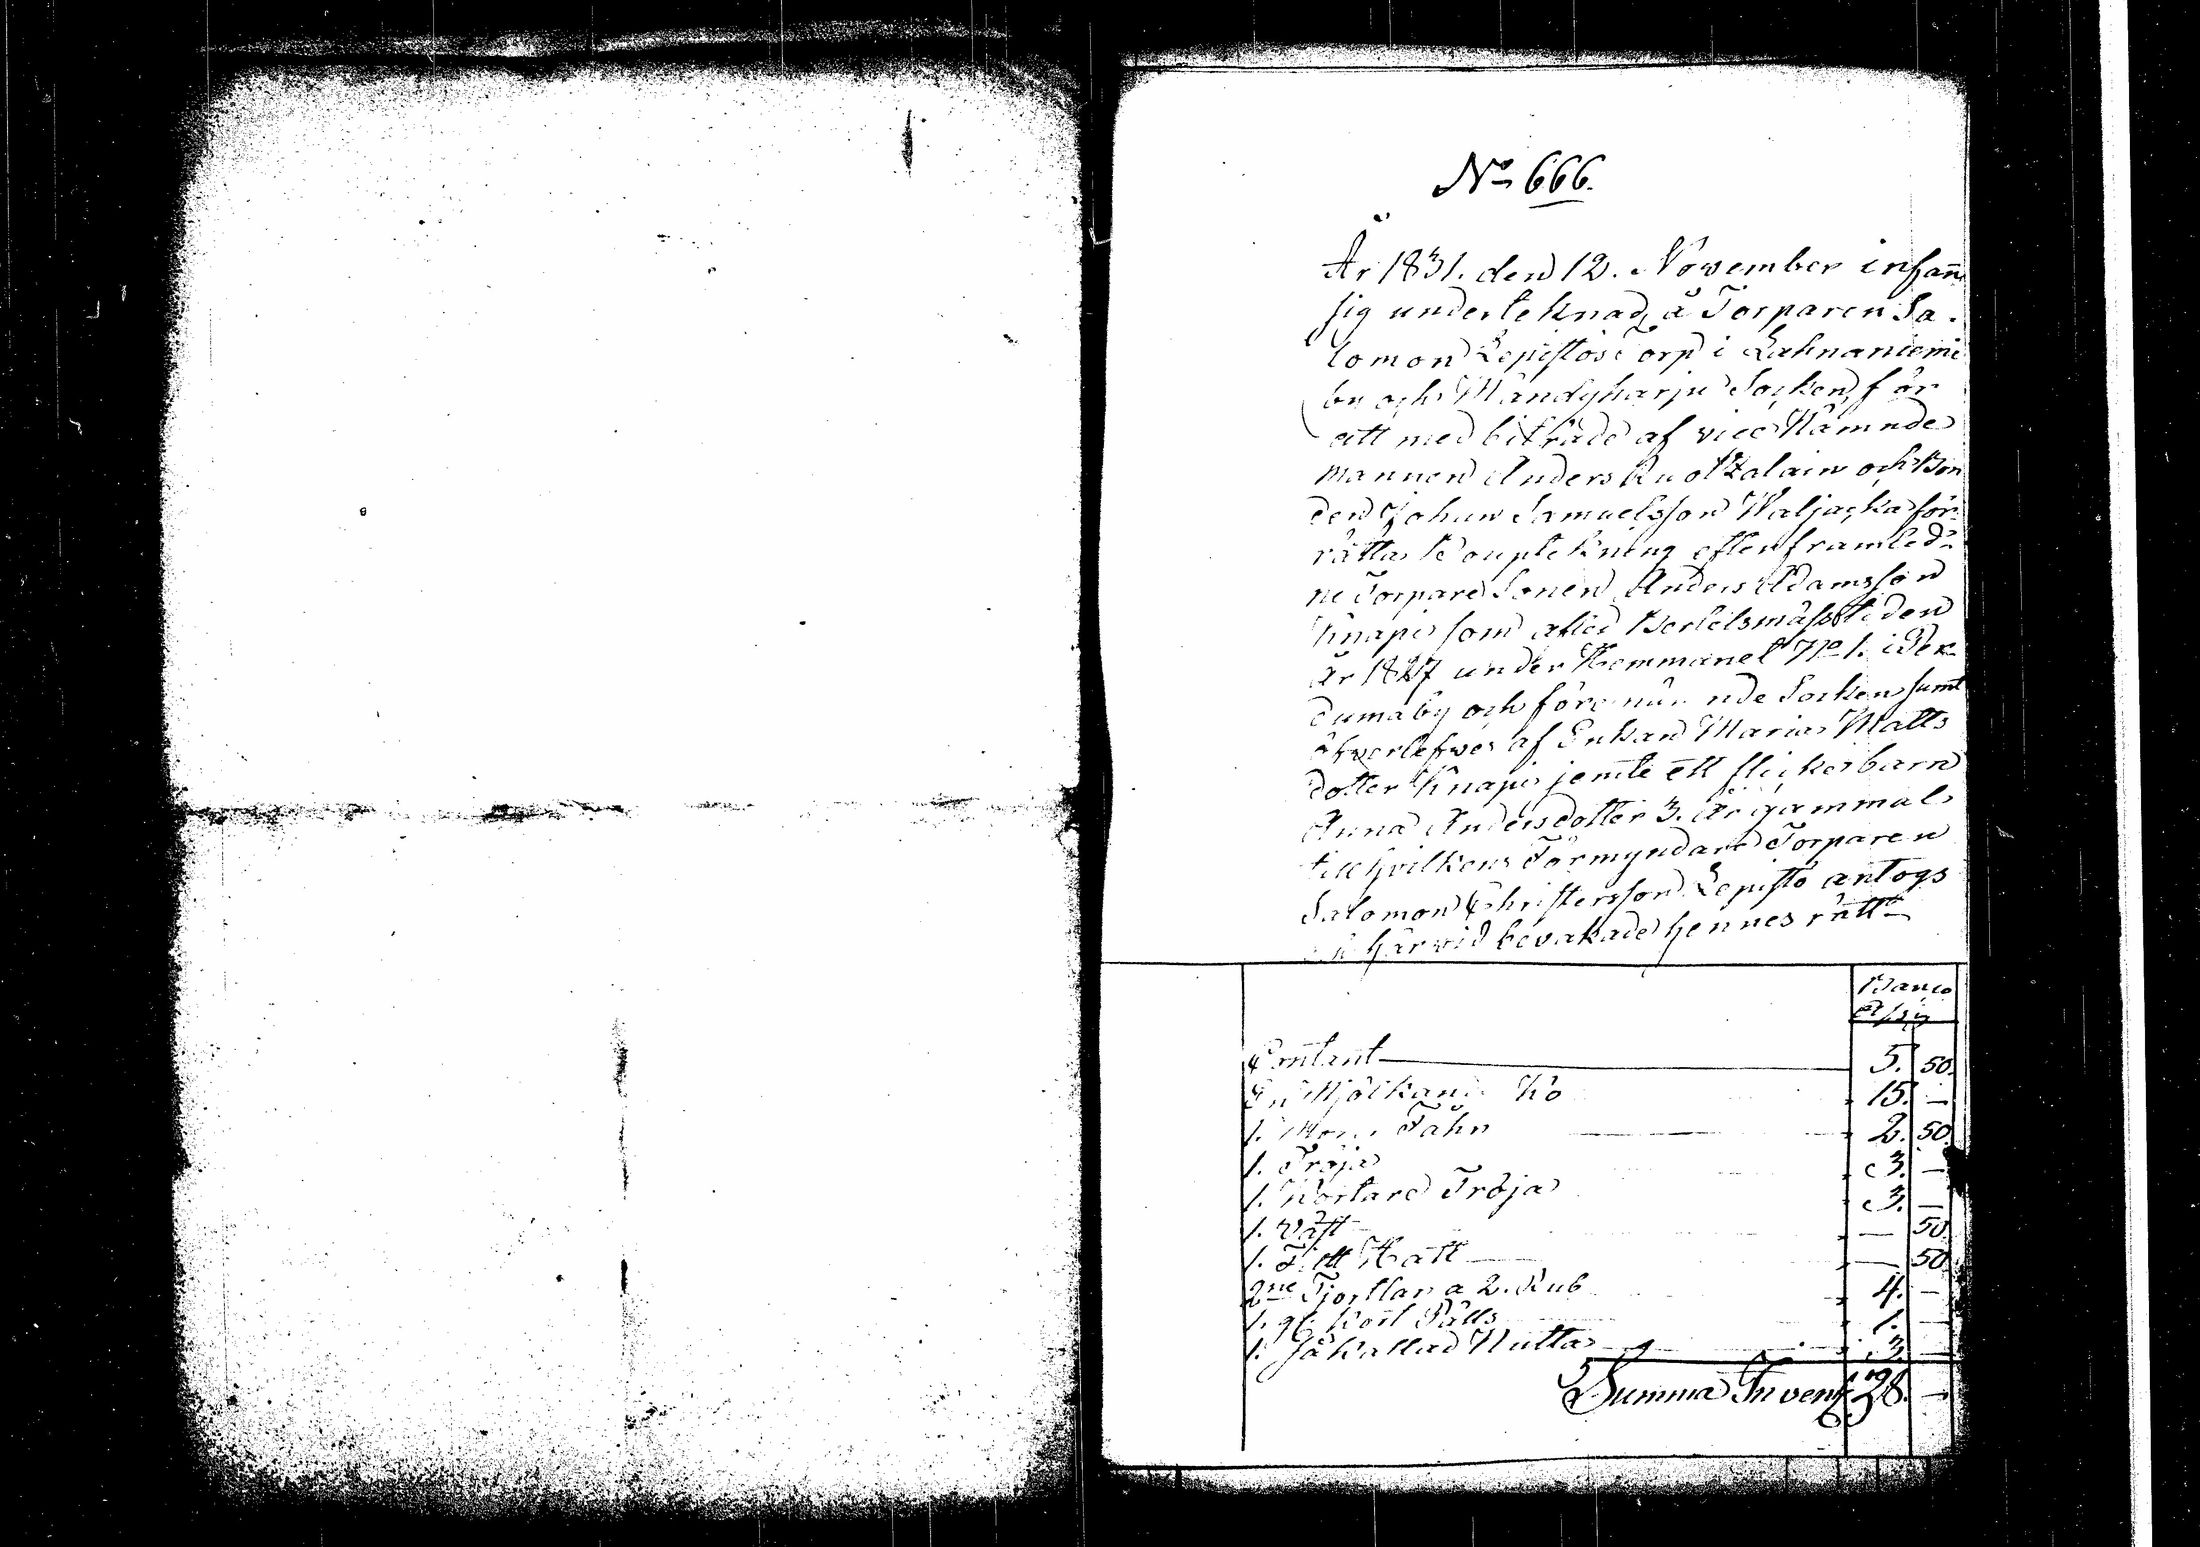 No 666.
År 1831. den 12. November infann
sig underteknad å Torparen Sa-
lomon Lepistös Torp i Lahnaniemi
by och Mändyharju Socken för
att med biträde af vice Nämnde
mannen Anders Ruotzalain och Bon
den Johan Samuelsson Waljacka för
rätta Bouptekning efter framled-
ne Torpare Sonen Anders Adamsson
Knapi som afled Bertelsmässotiden
År 1827 under Hemmanet No 1. i
duma by och förenämnde Socken samt
öfverlefves af Enkan Maria Matts
dotter Knapi jemte ett flickebarn
Anna Andersdotter 3. År gammal
till hvilkens Förmyndare Torparen
Salomon Christersson Lepistö antogs
härvid bevakade hennes rätt
Banco
Contant 5. 50.
En Mjölkande Ko 15. —
1. Fåhn 2. 50.
1. Tröja 3. —
1. Kortare Tröja 3. —
1. Väst — 50
1. Filtt Hatt — 50
2ne Tjortlar a 2. Rub 4. —
1. gl. Kort Pälls 1. —
1. så kallad Nutta 3. —
Summa Invent 28. —